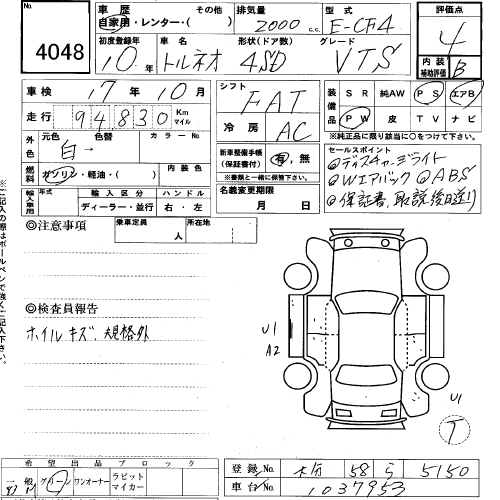 No. 4048
車歴 その他 自家用・レンター・( )
排気量 2000 c.c.
型式 E-CF4
評価点 4
内装補助評価 B
初度登録年 10年
車名 トルネオ
形状(ドア数) 4SD
グレード VTS
車検 17年10月
走行 94,830 Km マイル
シフト FAT
冷房 AC
装備品 SR 純AW PS エアB
PW 皮 TV ナビ
※純正品に限り該当に○をつけて下さい。
外色 元色 白→ 色替 カラーNo.
燃料 ガソリン・軽油・( ) 内装色
新車整備手帳(保証書付) 有・無
※書類と一緒に保管下さい。
セールスポイント
◎ディスチャージライト
◎Wエアバック ◎ABS
◎保証書、取説後日送り
輸入車用 年式 輸入区分 ディーラー・並行 ハンドル 右・左
名義変更期限 月 日
※ご記入の際はボールペンで強くご記入下さい。
◎注意事項 乗車定員 人 所在地
◎検査員報告
ホイルキズ、規格外
U1
A2
U1
T
希望出品ブロック
一般 グリーン ワンオーナー ラビットマイカー
登録No. 58 ら 5150
車台No. 1037953